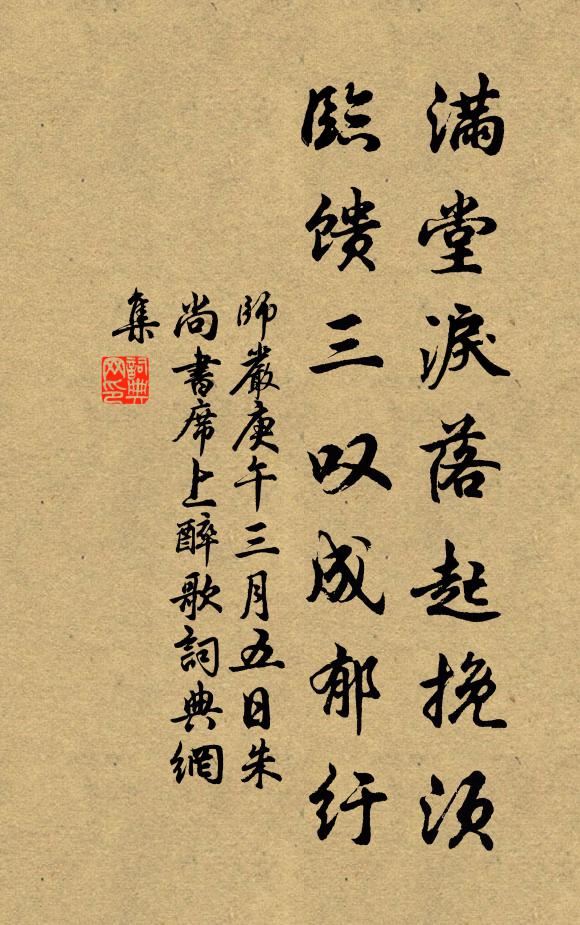 滿堂淚落起挽须
臨馈三叹成郁纡
師嚴庚午三月五日朱
尚書席上醉歌詞典網
集
詞典
网印